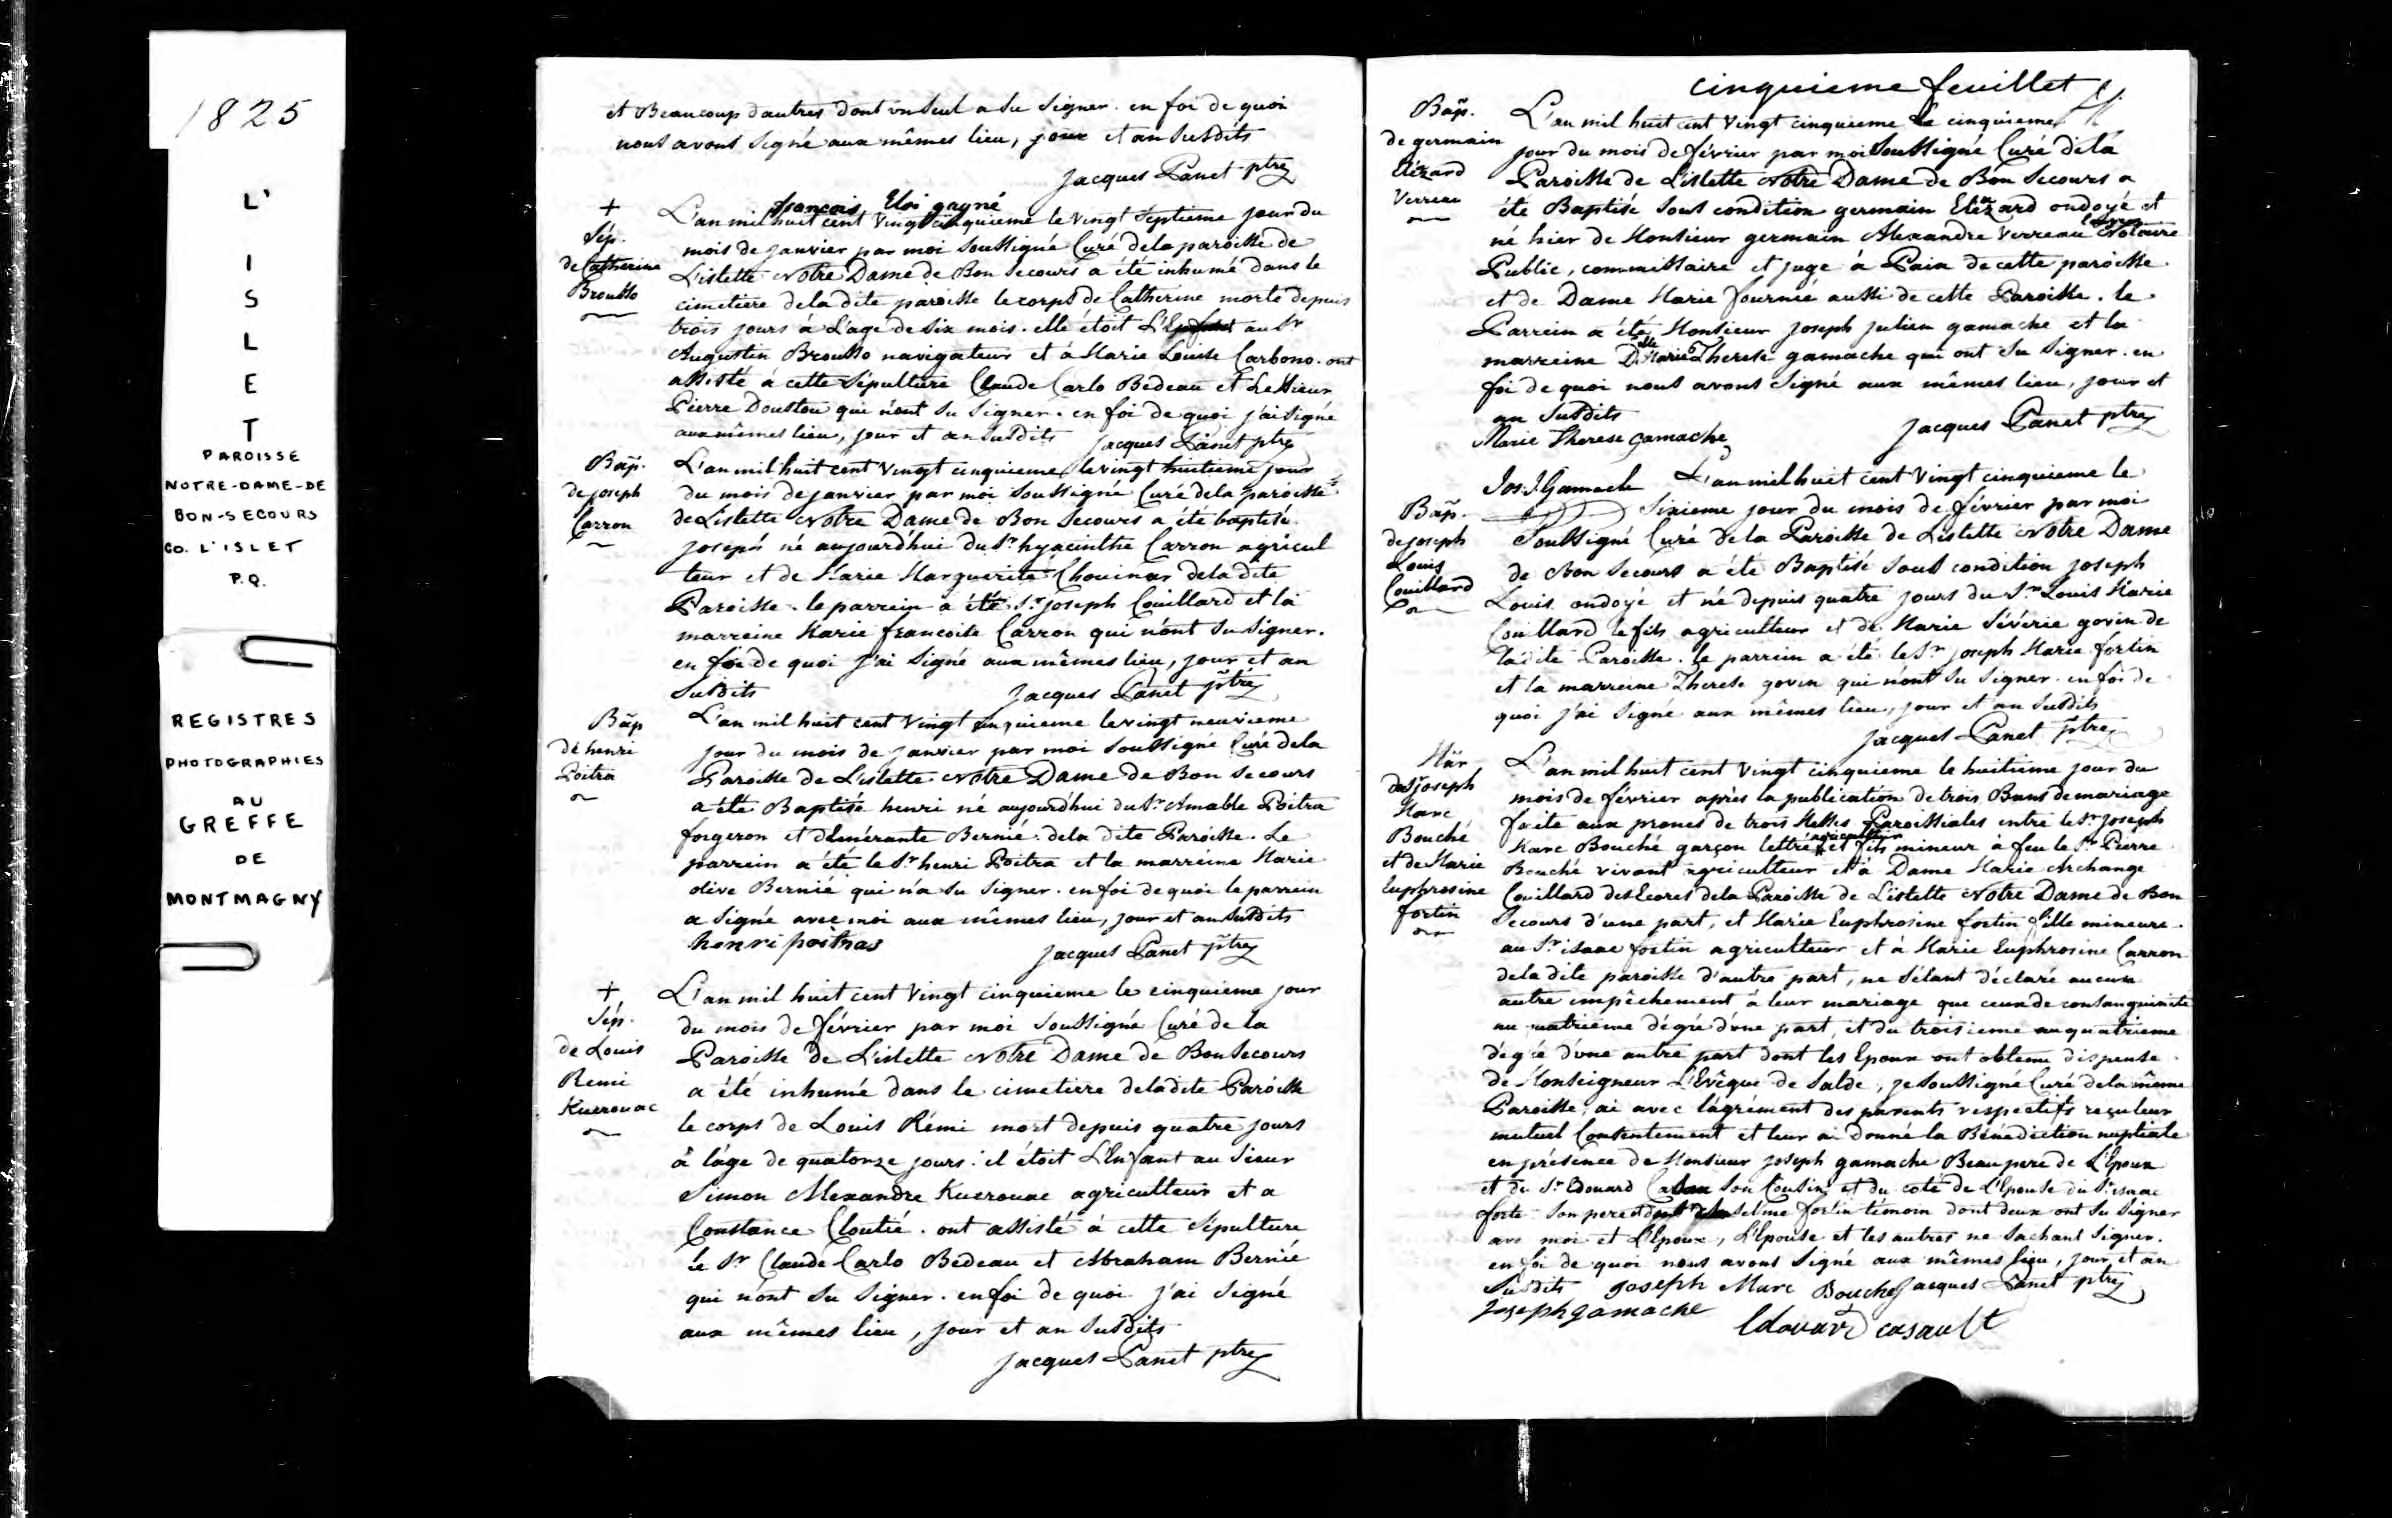 1825
L'
I
S
L
E
T
PAROISSE
NOTRE-DAME-DE
BON-SECOURS
CO. L'ISLET
P.Q.
REGISTRES
PHOTOGRAPHIES
AU
GREFFE
DE
MONTMAGNY
et Beaucoup d'autres dont un seul a su signer. en foi de quoi
nous avons signé aux mêmes lieu, jour et an susdits
Jacques Panet ptre
françois Eloi gagné
+
Sép.
de Catherine
Brousso
L'an mil huit cent vingt cinquieme le vingt septieme jour du
mois de janvier par moi soussigné Curé de la paroisse de
L'islette Notre Dame de Bon Secours a été inhumé dans le
cimetiere de la dite paroisse le corps de Catherine morte depuis
trois jours à l'age de six mois. elle étoit L'Enfant au Sr
Augustin Brousso navigateur et à Marie Louise Carbono. ont
assisté à cette sépulture Claude Carlo Bedeau et Le Sieur
Pierre Doustou qui n'ont su signer. en foi de quoi j'ai signé
aux mêmes lieu, jour et an susdits Jacques Panet ptre
Bap.
de joseph
Carron
L'an mil huit cent vingt cinquieme le vingt huitieme jour
du mois de janvier par moi soussigné Curé de la paroisse
de Lislette Notre Dame de Bon Secours a été baptisé
joseph né aujourd'hui du Sr hyacinthe Carron agricul
teur et de Marie Marguerite Chouinar de la dite
Paroisse. le parrein a été Sr joseph Couillard et la
marreine Marie francoise Carron qui n'ont su signer.
en foi de quoi j'ai signé aux mêmes lieu, jour et an
susdits Jacques Panet ptre
Bap
de henri
Poitra
L'an mil huit cent vingt cinquieme le vingt neuvieme
jour du mois de janvier par moi soussigné Curé de la
Paroisse de L'islette Notre Dame de Bon Secours
a été Baptisé henri né aujourd'hui du Sr Amable Poitra
forgeron et d'Emérante Bernié de la dite Paroisse. Le
parrein a été le Sr henri Poitra et la marreine Marie
olive Bernié qui n'a su signer. en foi de quoi le parrein
a signé avec moi aux mêmes lieu, jour et an susdits
henri poitras Jacques Panet ptre
+
Sép.
de Louis
Remi
Kuerouac
L'an mil huit cent vingt cinquieme le cinquieme jour
du mois de février par moi soussigné Curé de la
Paroisse de L'islette Notre Dame de Bon Secours
a été inhumé dans le cimetiere de la dite Paroisse
le corps de Louis Rémi mort depuis quatre jours
à l'âge de quatorze jours: il étoit L'Enfant au Sieur
Simon Alexandre Kuerouac agriculteur et a
Constance Cloutié. ont assisté à cette sépulture
le Sr Claude Carlo Bedeau et Abraham Bernié
qui n'ont su signer. en foi de quoi j'ai signé
aux mêmes lieu, jour et an susdits
Jacques Panet ptre
cinquieme feuillet
Bap.
de germain
Elézard
Verreau
L'an mil huit cent vingt cinquieme le cinquieme
jour du mois de février par moi soussigné Curé de la
Paroisse de L'islette Notre Dame de Bon Secours a
été Baptisé sous condition germain Elézard ondoyé et
né hier de Monsieur germain Alexandre Verreau Notaire
Public, commissaire et juge à Paix de cette paroisse
et de Dame Marie fournié aussi de cette Paroisse. le
Parrein a été Monsieur joseph julien gamache et la
marreine Dlle Marie Therese gamache qui ont su signer. en
foi de quoi nous avons signé aux mêmes lieu, jour et
an susdits
Marie Therese Gamache Jacques Panet ptre
Jos. J. Gamache
Bap.
de joseph
Louis
Couillard
L'an mil huit cent vingt cinquieme le
sixieme jour du mois de février par moi
soussigné Curé de la Paroisse de Lislette Notre Dame
de Bon Secours a été Baptisé sous condition joseph
Louis ondoyé et né depuis quatre jours du Sr Louis Marie
Couillard le fils agriculteur et de Marie Séverie govin de
la dite Paroisse. le parrein a été le Sr joseph Marie fortin
et la marreine Therese govin qui n'ont su signer. en foi de
quoi j'ai signé aux mêmes lieu, jour et an susdits
Jacques Panet ptre
Mar
du Sr joseph
Marc
Bouché
et de Marie
Euphrosine
fortin
L'an mil huit cent vingt cinquieme le huitieme jour du
mois de février après la publication de trois Bans de mariage
faite aux prones de trois Messes Paroissiales entre le Sr joseph
Marc Bouché garçon lettré agriculteur et fils mineur à feu le Sr Pierre
Bouché vivant agriculteur et à Dame Marie Archange
Couillard des Ecores de la Paroisse de L'islette Notre Dame de Bon
Secours d'une part, et Marie Euphrosine fortin fille mineure
au Sr isaac fortin agriculteur et à Marie Euphrosine Carron
de la dite paroisse d'autre part, ne s'étant déclaré aucun
autre empêchement à leur mariage que ceux de consanguinité
au quatrieme dégré d'une part, et du troisieme au quatrieme
dégré d'une autre part dont les Epoux ont obtenu dispense
de Monseigneur L'Evêque de Salde, je soussigné Curé de la même
Paroisse, ai avec l'agrément des parents respectifs reçu leur
mutuel Consentement et leur ai donné la Bénédiction nuptiale
en présence de Monsieur joseph gamache Beaupere de L'Epoux
et du Sr Edouard son Cousin, et du coté de L'Epouse du Sr isaac
fortin son pere et Anselme fortin témoin dont deux ont su signer
avec moi et L'Epoux, L'Epouse et les autres ne sachant signer.
en foi de quoi nous avons signé aux mêmes lieu, jour et an
susdits Joseph Marc Bouché Jacques Panet ptre
joseph gamache
Edouard casault